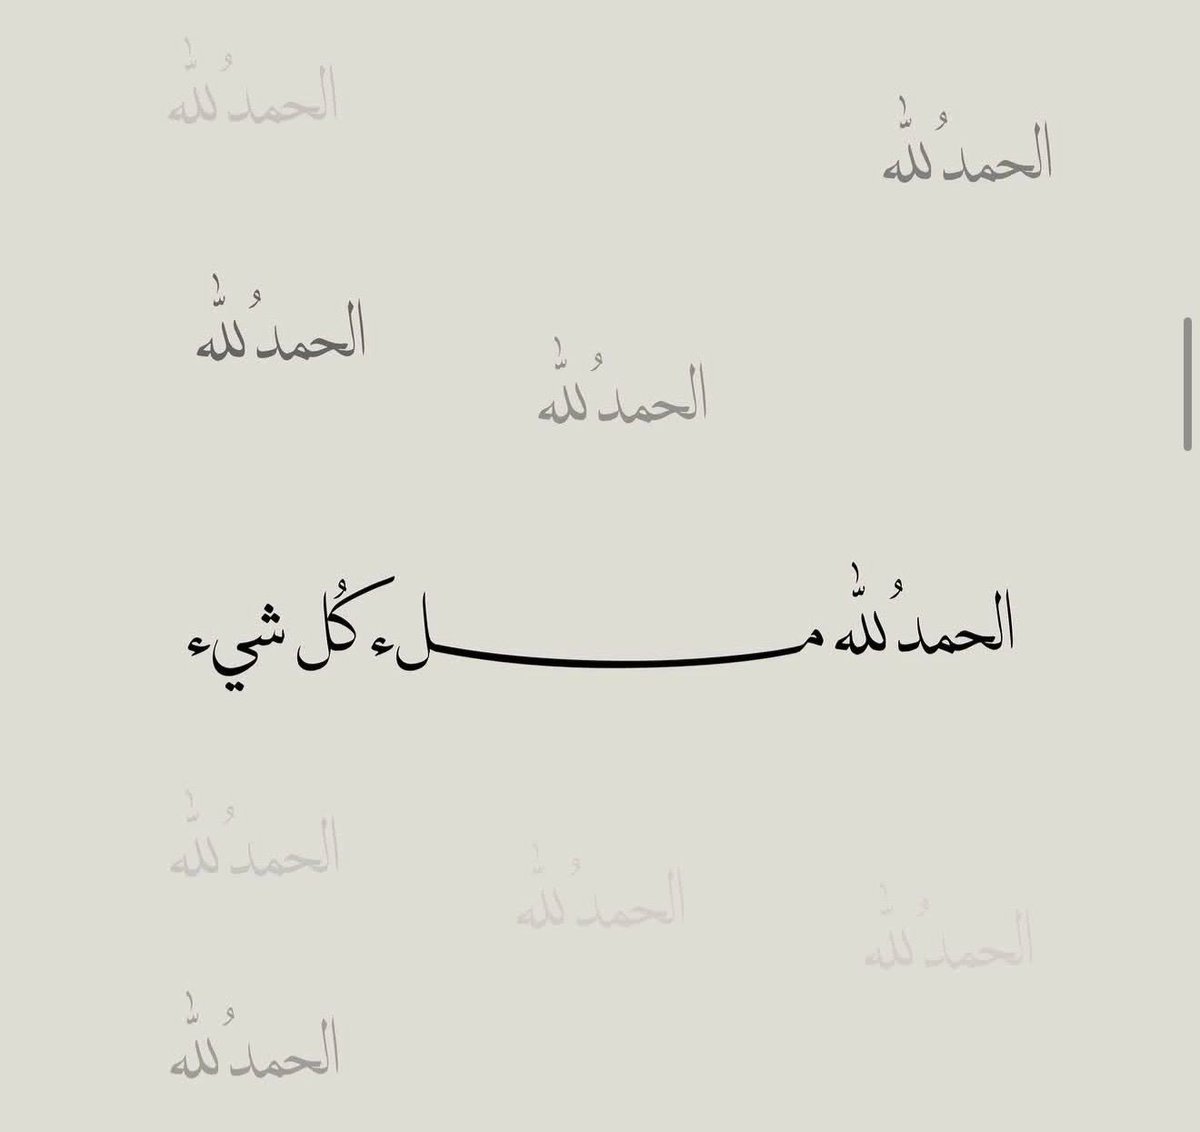 الحمدُ لله
الحمدُ لله
الحمدُ لله
الحمدُ لله
الحمدُ لله مـــــــلء كُل شيء
الحمدُ لله
الحمدُ لله
الحمدُ لله
الحمدُ لله